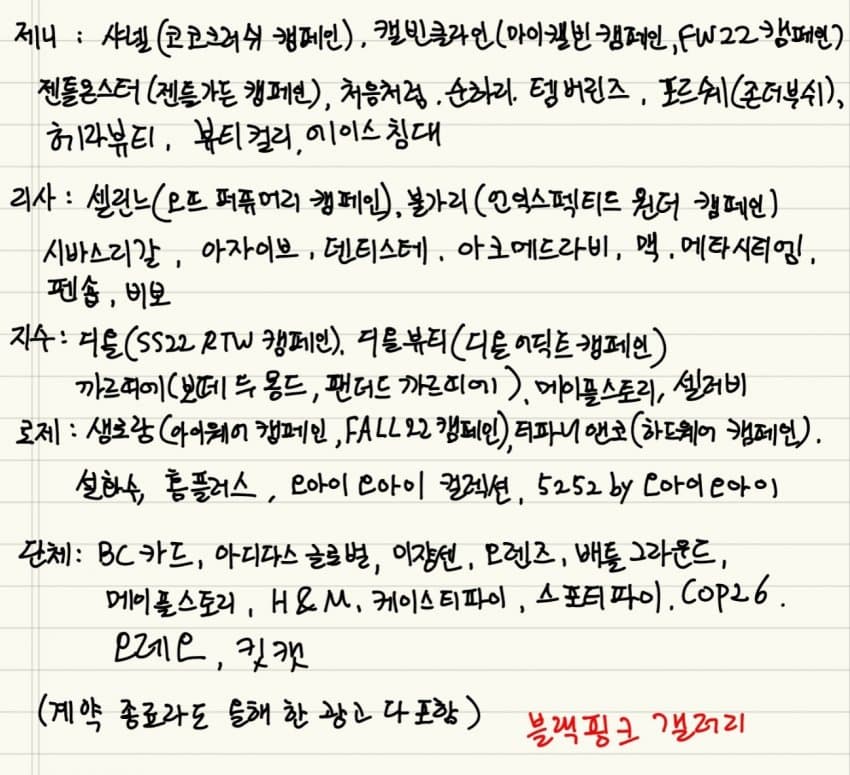 제니 : 샤넬(코코크러쉬 캠페인), 캘빈클라인(마이캘빈 캠페인, FW22 캠페인)
젠틀몬스터(젠틀가든 캠페인), 처음처럼, 순하리, 탬버린즈, 포르쉐(존더부쉬),
헤라뷰티, 뷰티컬리, 에이스침대
리사 : 셀린느(오뜨 퍼퓨머리 캠페인), 불가리(언익스펙티드 원더 캠페인)
시바스리갈, 아자이브, 덴티스테, 아크메드라비, 맥, 메타시티엠,
펜숍, 비보
지수 : 디올(SS22 RTW 캠페인), 디올뷰티(디올어딕트캠페인)
까르띠에(보떼 두 몽드, 팬더드 까르띠에), 메이플스토리, 셀러비
로제 : 생로랑(아이웨어 캠페인, FALL22 캠페인), 티파니앤코(하드웨어 캠페인).
설화수, 홈플러스, 오아이오아이 컬렉션, 5252 by 오아이오아이
단체 : BC카드, 아디다스 글로벌, 미쟝센, 오렌즈, 배틀그라운드,
메이플스토리, H&M, 케이스티파이, 스포티파이, COP26.
오레오, 킷캣
(계약 종료라도 올해 한 광고 다 포함)
블랙핑크 갤러리